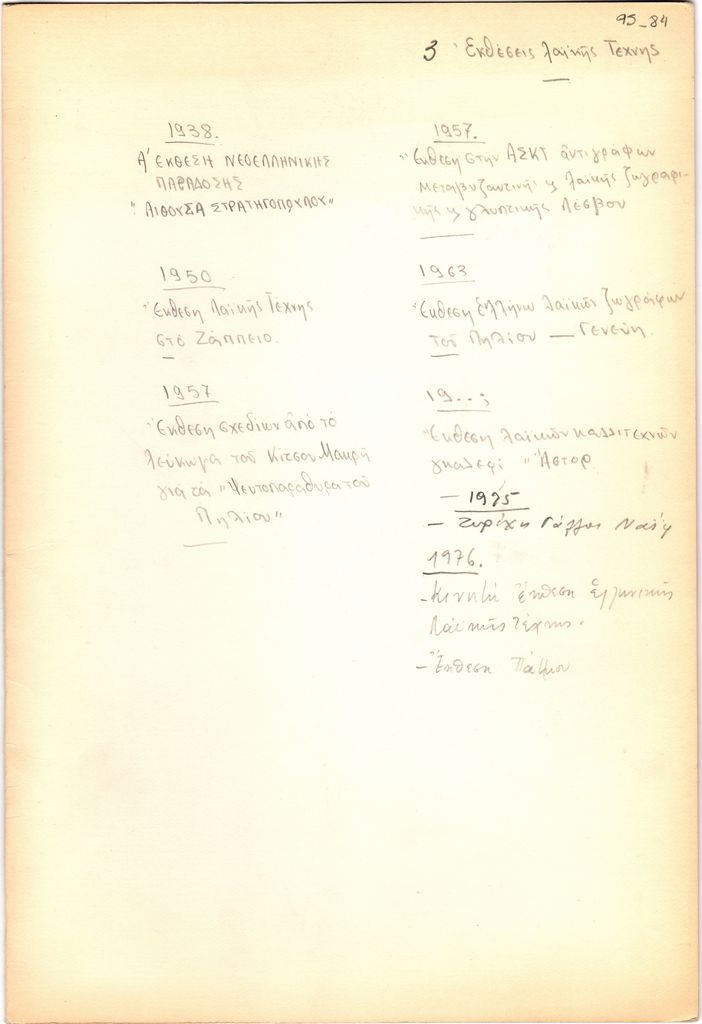 95_84
3 Ἐκθέσεις λαϊκῆς Τέχνης
1938.
Α' ΕΚΘΕΣΗ ΝΕΟΕΛΛΗΝΙΚΗΣ
ΠΑΡΑΔΟΣΗΣ
"ΑΙΘΟΥΣΑ ΣΤΡΑΤΗΓΟΠΟΥΛΟΥ"
1950
Ἔκθεση Λαϊκῆς Τέχνης
στὸ Ζάππειο.
1957
Ἔκθεση σχεδίων ἀπὸ τὸ
λεύκωμα τοῦ Κίτσου Μακρῆ
γιὰ τὰ "Ψευτοπαράθυρα τοῦ
Πηλίου"
1957.
Ἔκθεση στὴν ΑΣΚΤ ἀντιγράφων
μεταβυζαντινῆς ϗ λαϊκῆς ζωγραφι-
κῆς ϗ γλυπτικῆς Λέσβου
1963
Ἔκθεση Ἑλλήνων λαϊκῶν ζωγράφων
τοῦ Πηλίου — Γενεύη.
19..;
Ἔκθεση λαϊκῶν καλλιτεχνῶν
γκαλερί "Ἄστορ
— 1975
— Ζυρίχη Γάλλοι Ναΐφ
1976.
- Κινητὴ ἔκθεση ἑλληνικῆς
λαϊκῆς τέχνης.
- Ἔκθεση Πάτμου